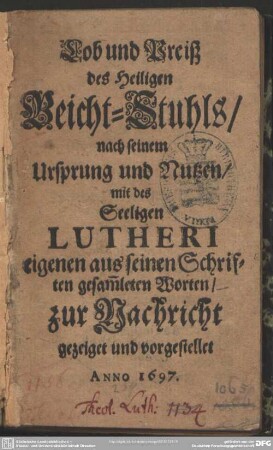 Lob und Preiß
des Heiligen
Beicht-Stuhls/
nach seinem
Ursprung und Nutzen/
mit des
Seeligen
LUTHERI
eigenen aus seinen Schrif-
ten gesam̃leten Worten/
zur Nachricht
gezeiget und vorgestellet
ANNO 1697.
Theol. Luth: 1134